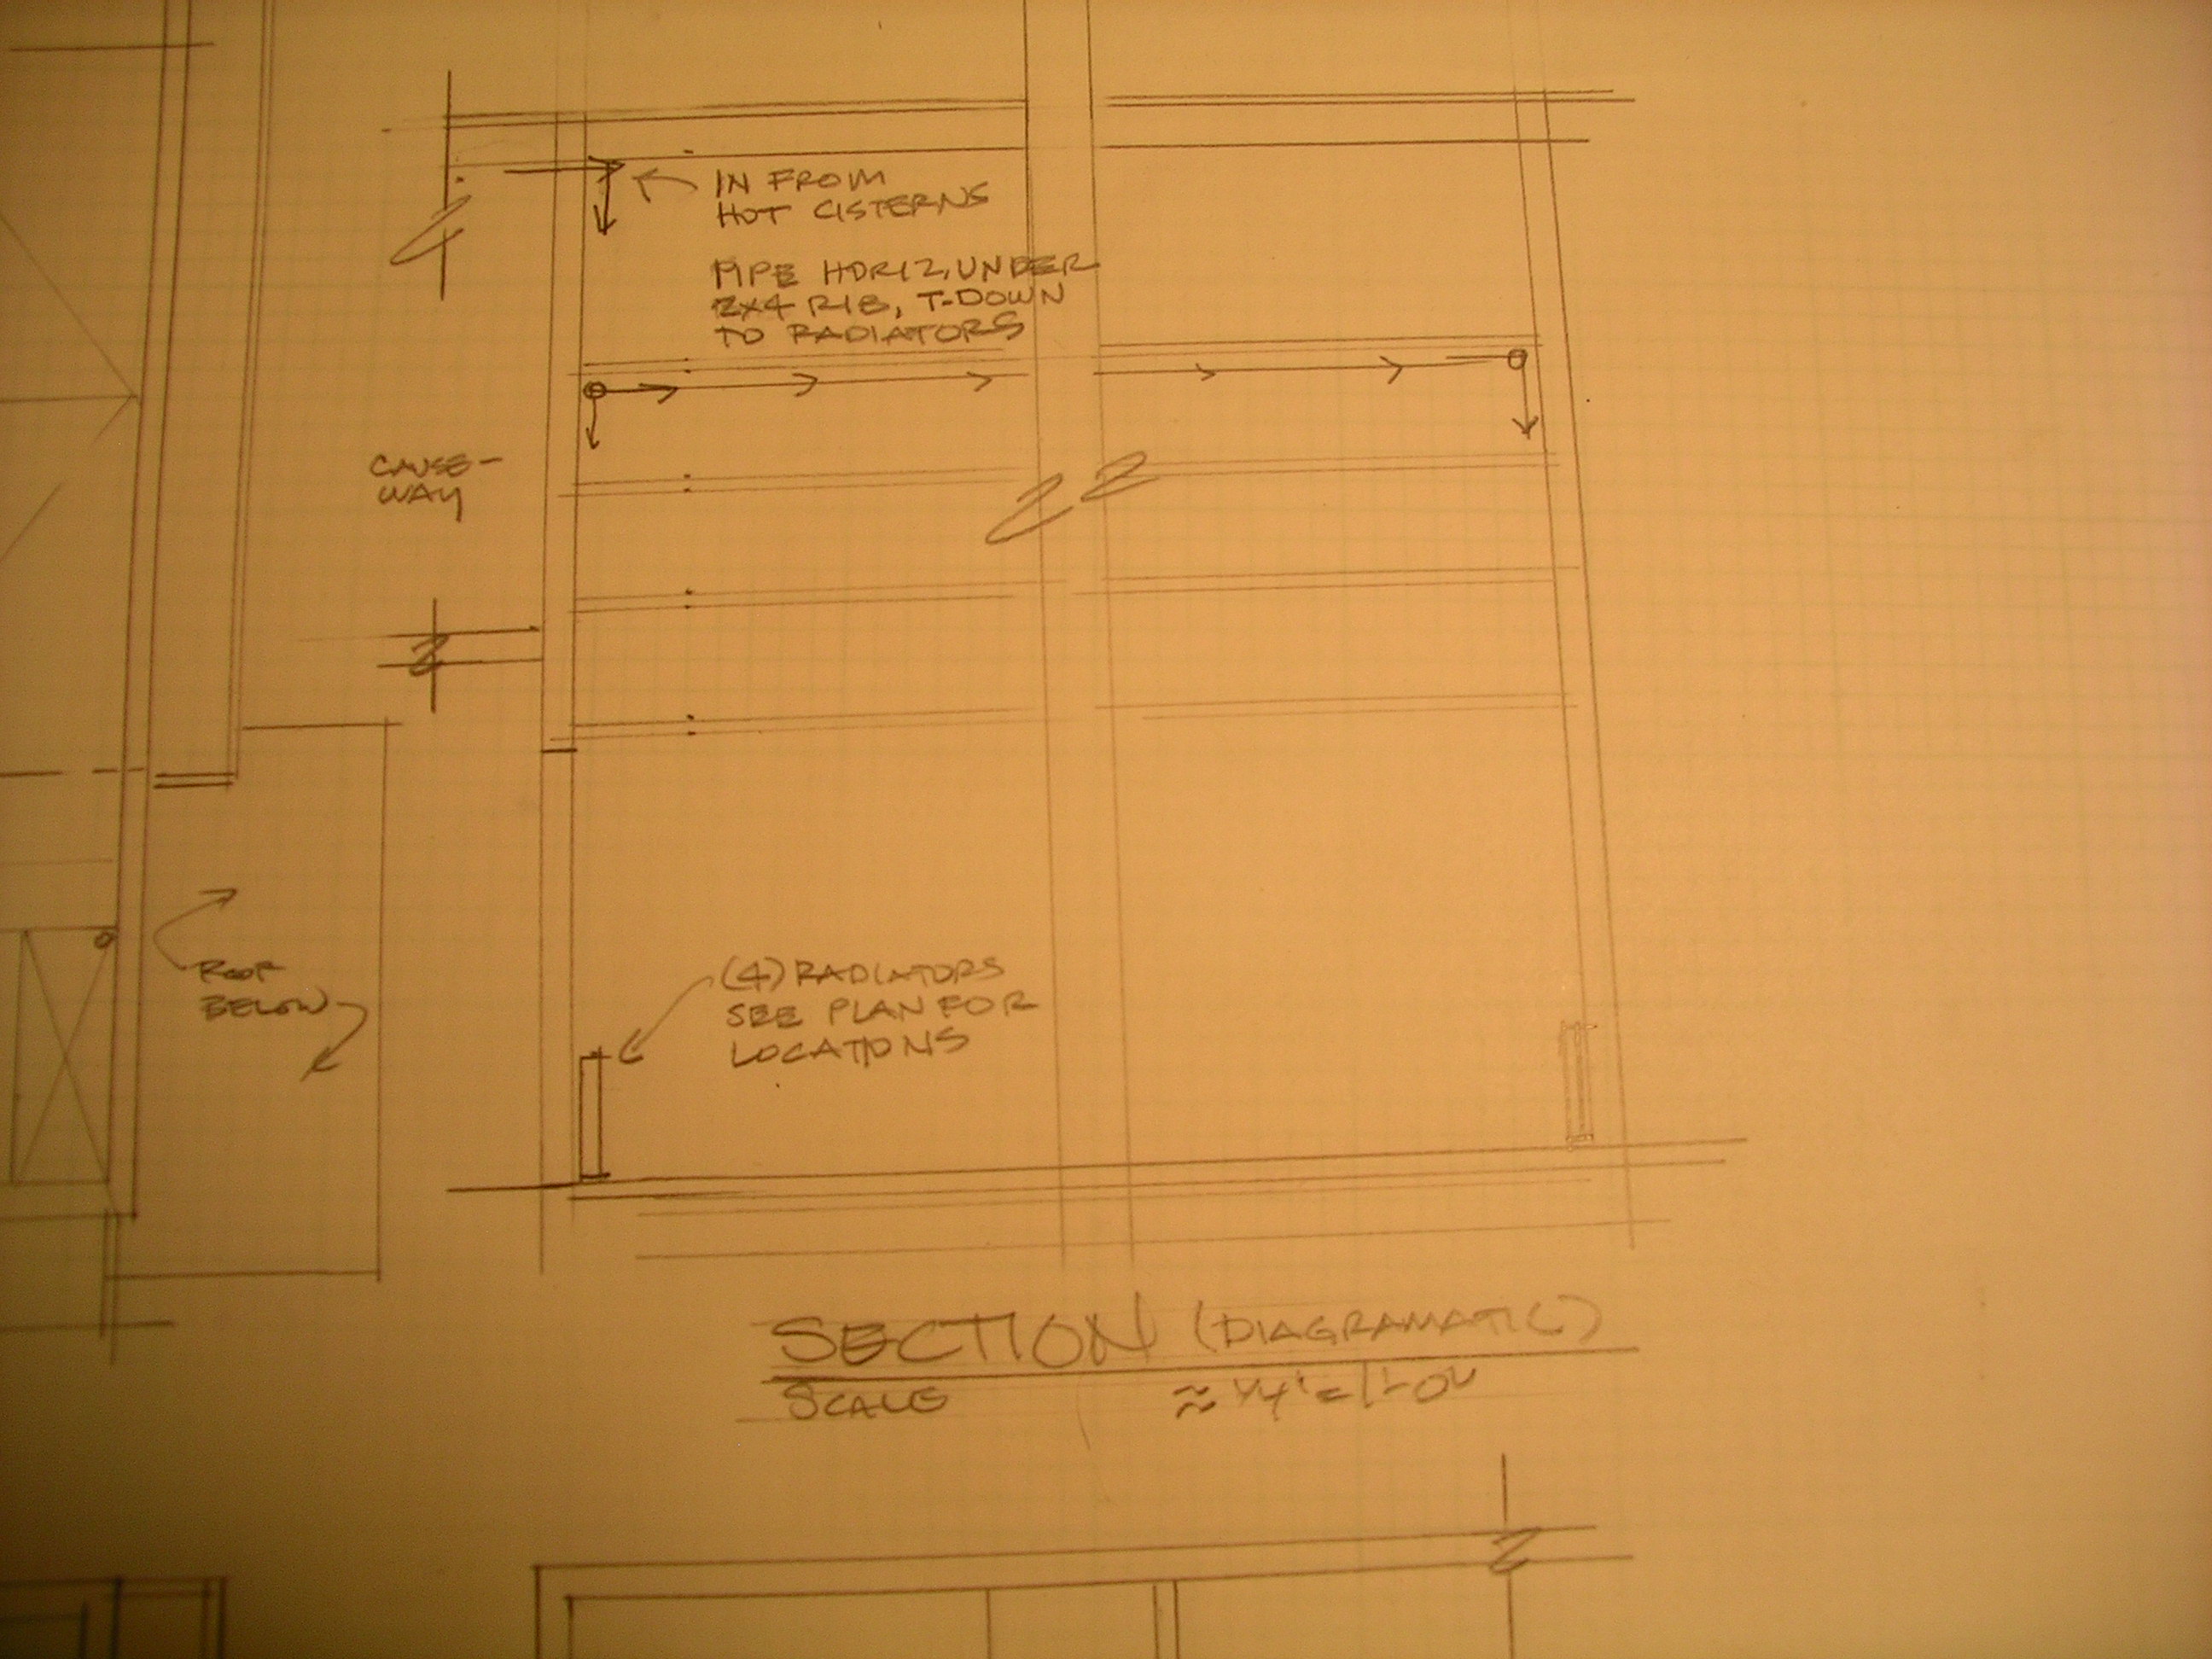 IN FROM
HOT CISTERNS
PIPE HORIZ, UNDER
2x4 RIB, T-DOWN
TO RADIATORS
CAUSE-
WAY
ROOF
BELOW
(4) RADIATORS
SEE PLAN FOR
LOCATIONS
SECTION (DIAGRAMATIC)
SCALE ≈ 1/4" = 1'-0"